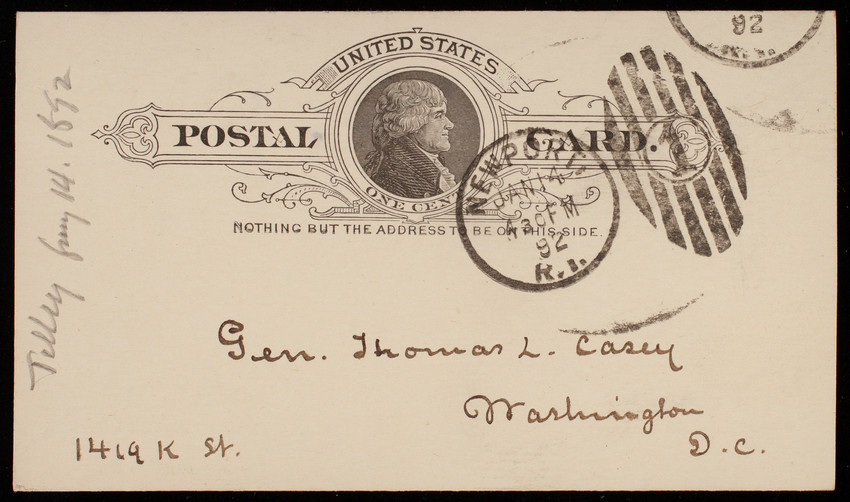 92
UNITED STATES
POSTAL CARD.
ONE CENT
NOTHING BUT THE ADDRESS TO BE ON THIS SIDE.
NEWPORT
JAN 14
30 PM
92
R.I.
1
Gen. Thomas L. Casey
Washington
D.C.
1419 K St.
Tilley Jany 14. 1892